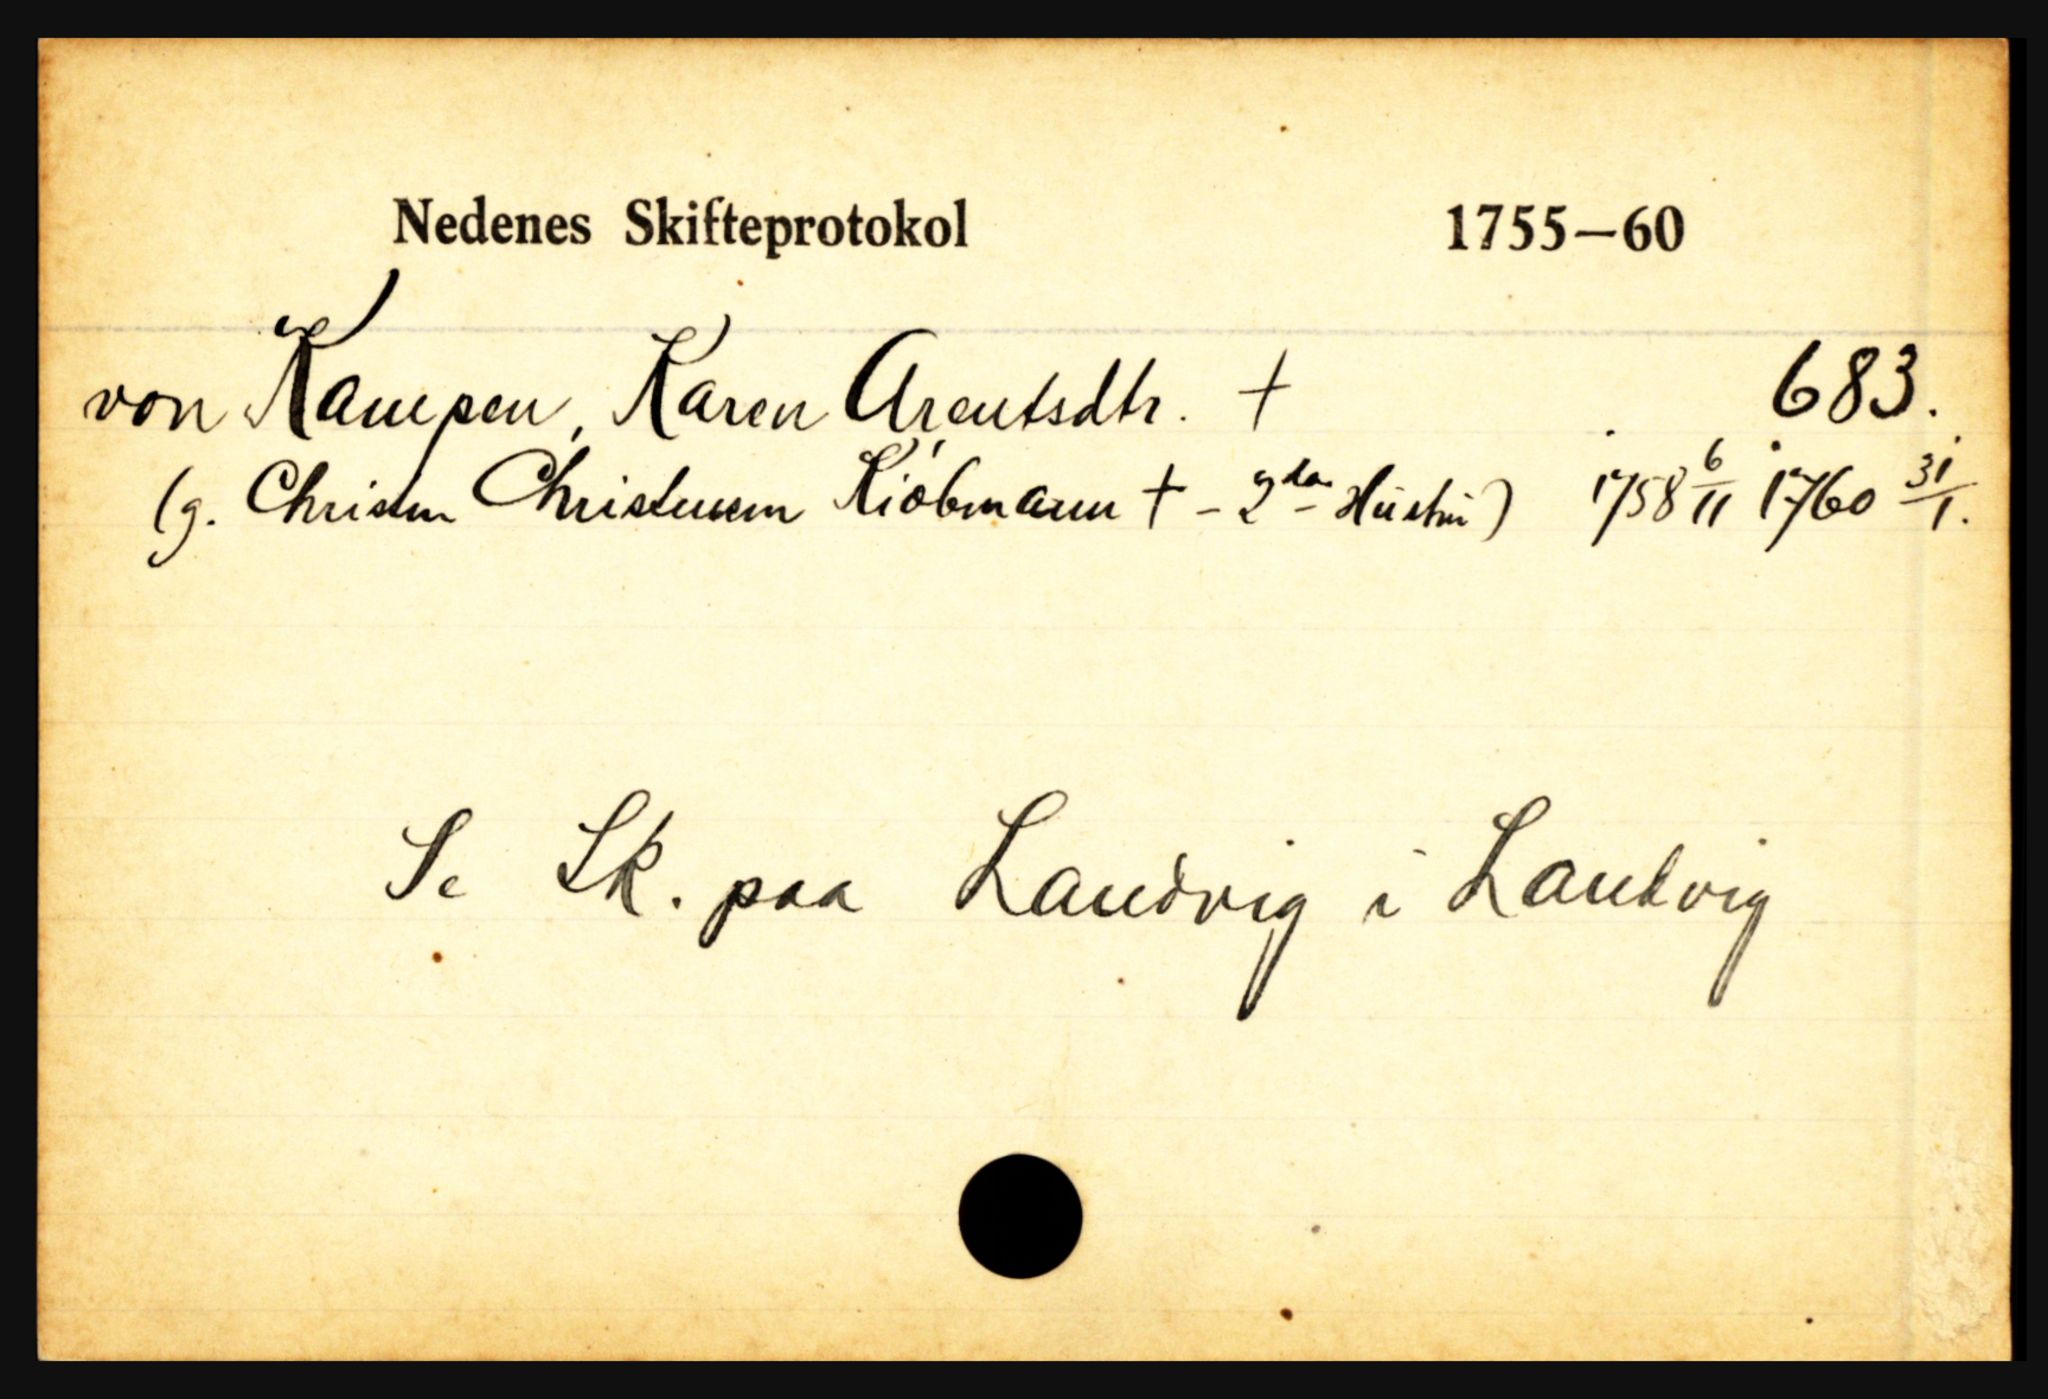 Nedenes Skifteprotokol 1755–60
von Kampen, Karen Arentsdtr. † 683.
(g. Christen Christensen Kiöbmann † - 2den Hustru) 1758 6/11 1760 31/1.
Se Sk. paa Landvig i Landvig